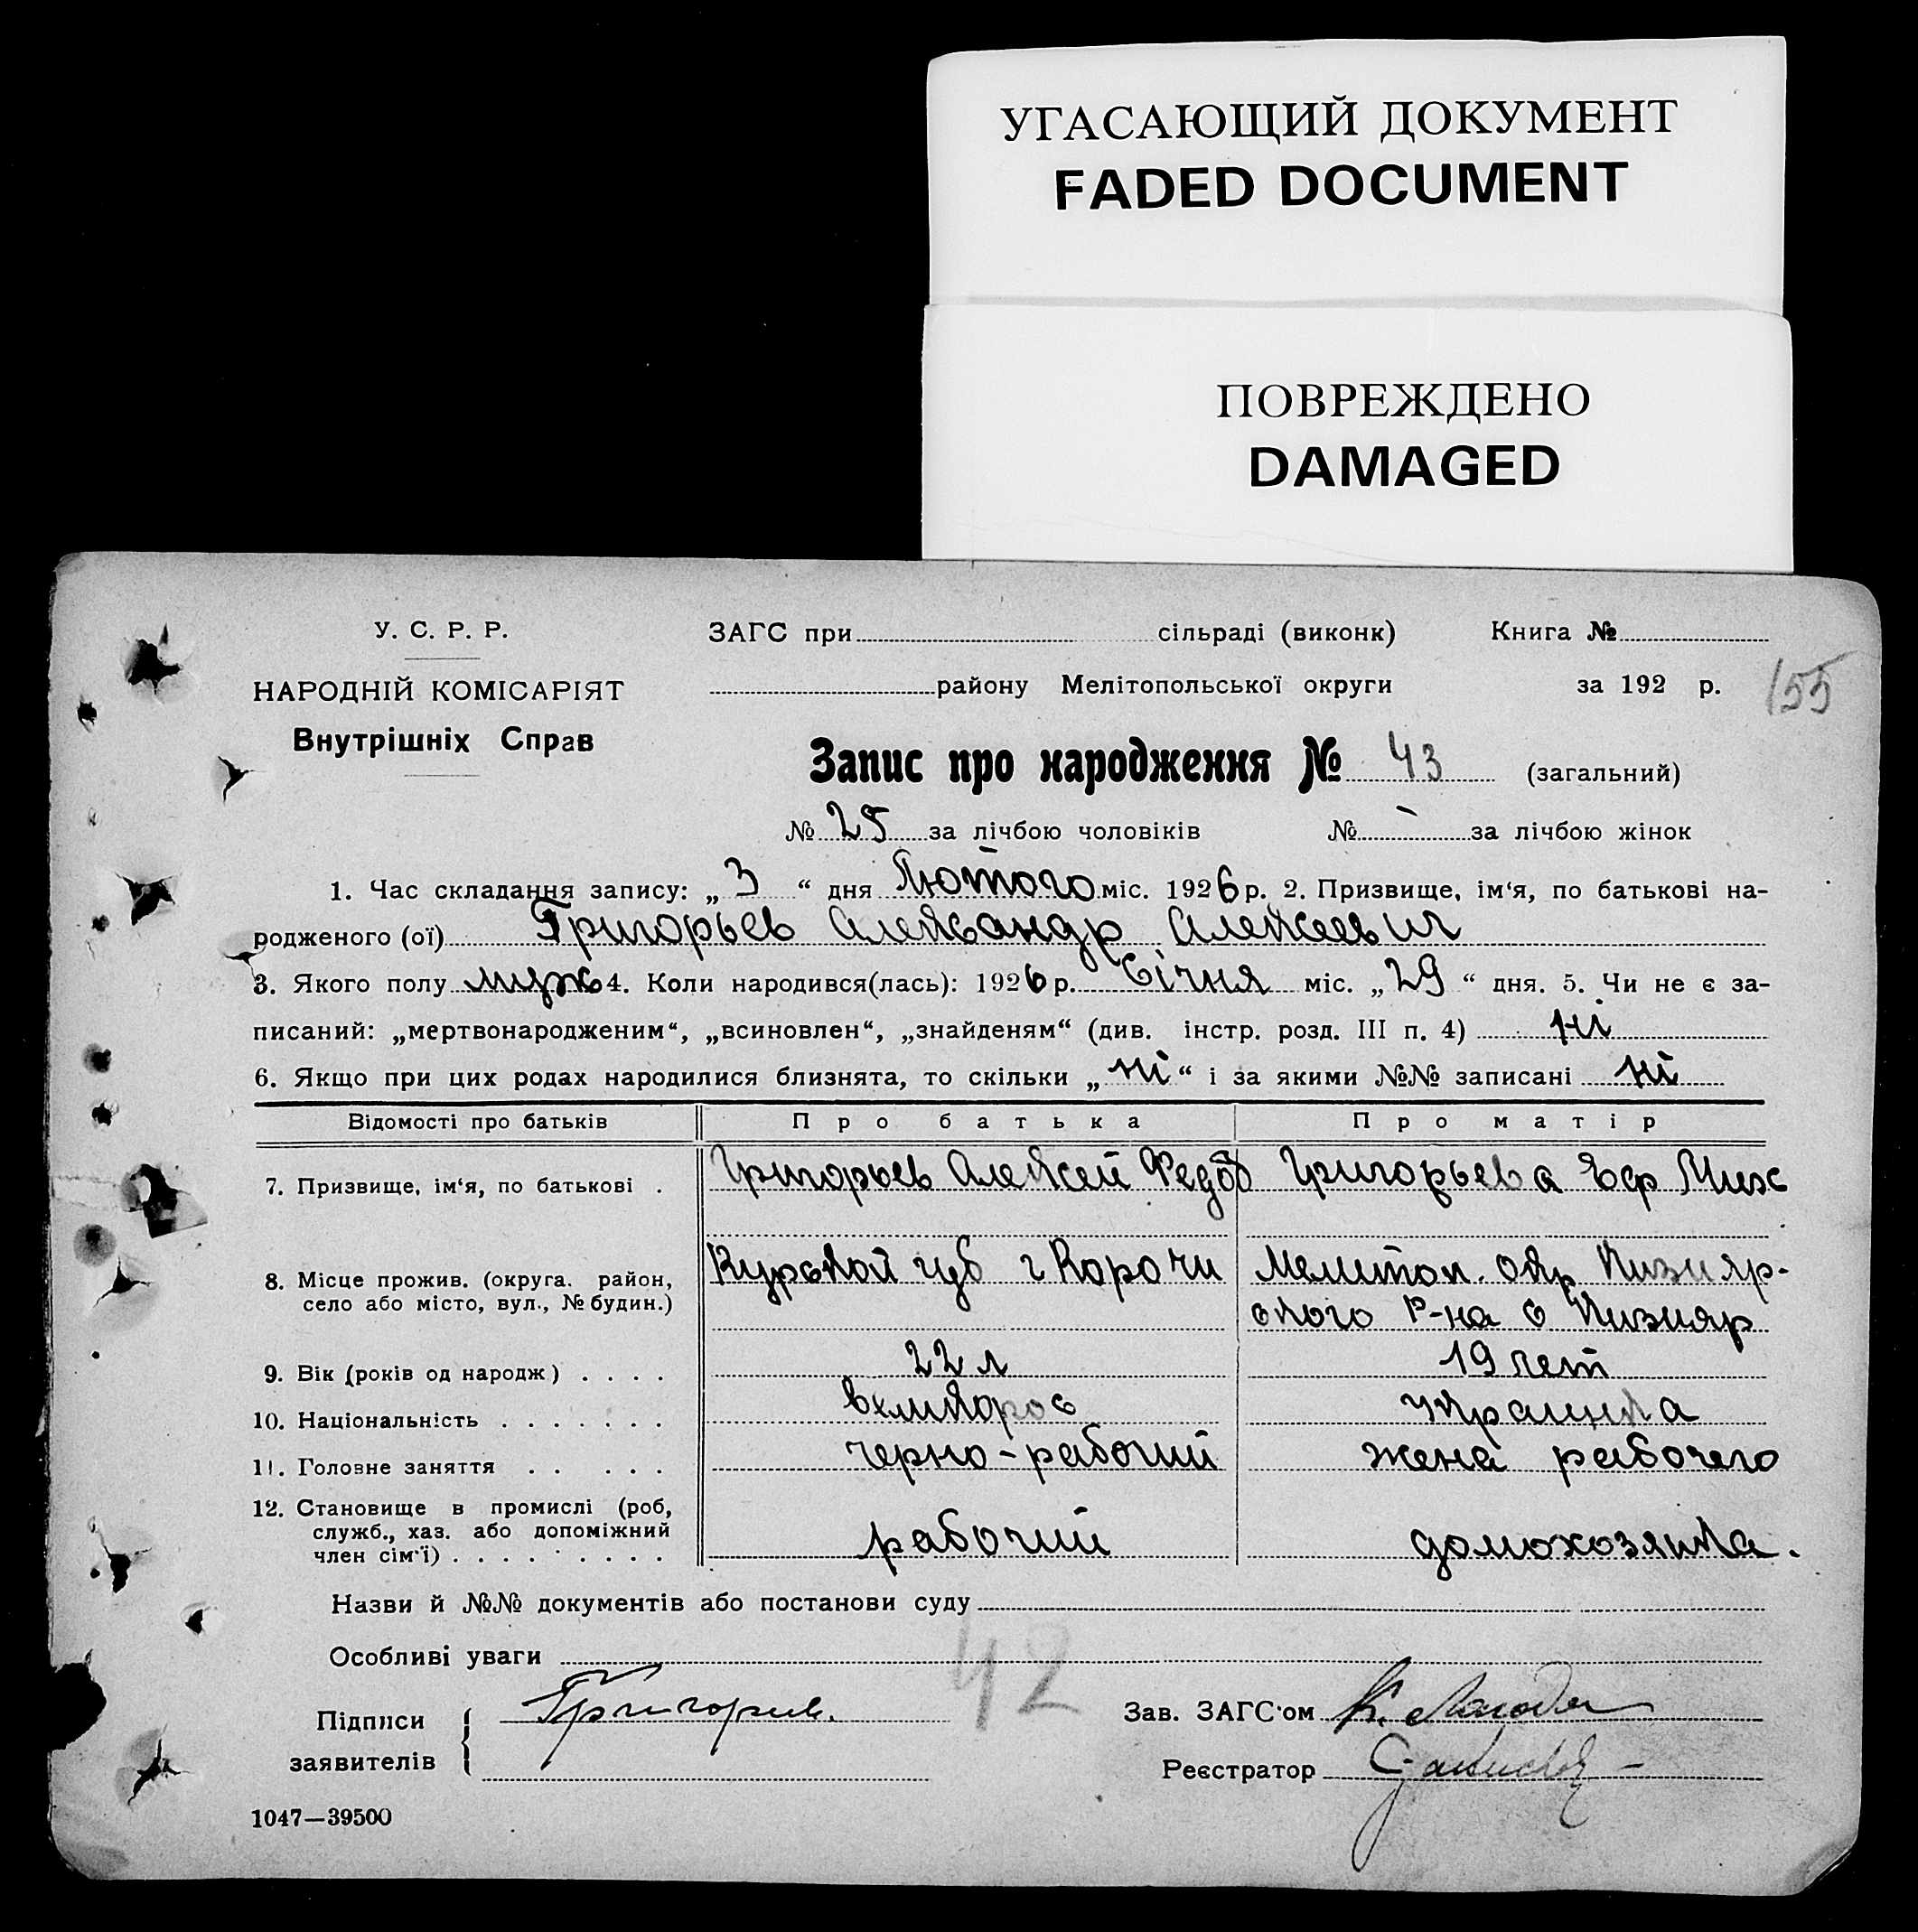 УГАСАЮЩИЙ ДОКУМЕНТ
FADED DOCUMENT
ПОВРЕЖДЕНО
DAMAGED
У. С. Р. Р.
ЗАГС при сільраді (виконк) Книга №
НАРОДНІЙ КОМІСАРІЯТ
району Мелітопольської округи за 192 р. 155
Внутрішніх Справ
Запис про народження № 43 (загальний)
№ 25 за лічбою чоловіків № - за лічбою жінок
1. Час складання запису: „ 3 “ дня Лютого міс. 1926 р. 2. Призвище, ім‘я, по батькові на-
родженого (ої) Григорьев Александр Алексеевич
3. Якого полу муж 4. Коли народився(лась): 1926 р. Січня міс. „ 29 “ дня. 5. Чи не є за-
писаний: „мертвонародженим“, „всиновлен“, „знайденям“ (див. інстр. розд. III п. 4) ні
6. Якщо при цих родах народилися близнята, то скільки „ ні “ і за якими №№ записані ні
Відомості про батьків Про батька Про матір
7. Призвище, ім‘я, по батькові . Григорьев Алексей Федов Григорьева Еф Мих
8. Місце прожив. (округа. район, Курской губ г Корочи Мелитоп. окр Кизияр-
село або місто, вул., № будин.) ского р-на с Кизияр
9. Вік (років од народж) . . . . 22 л 19 лет
10. Національність . . . . . . . великорос украинка
11. Головне заняття . . . . . черно-рабочий жена рабочего
12. Становище в промислі (роб,
служб., хаз. або допоміжний
член сім‘ї) . . . . . . . . . рабочий домохозяйка.
Назви й №№ документів або постанови суду
Особливі уваги
42
Підписи
заявителів
Григорьев. Зав. ЗАГС‘ом
Реєстратор
1047—39500